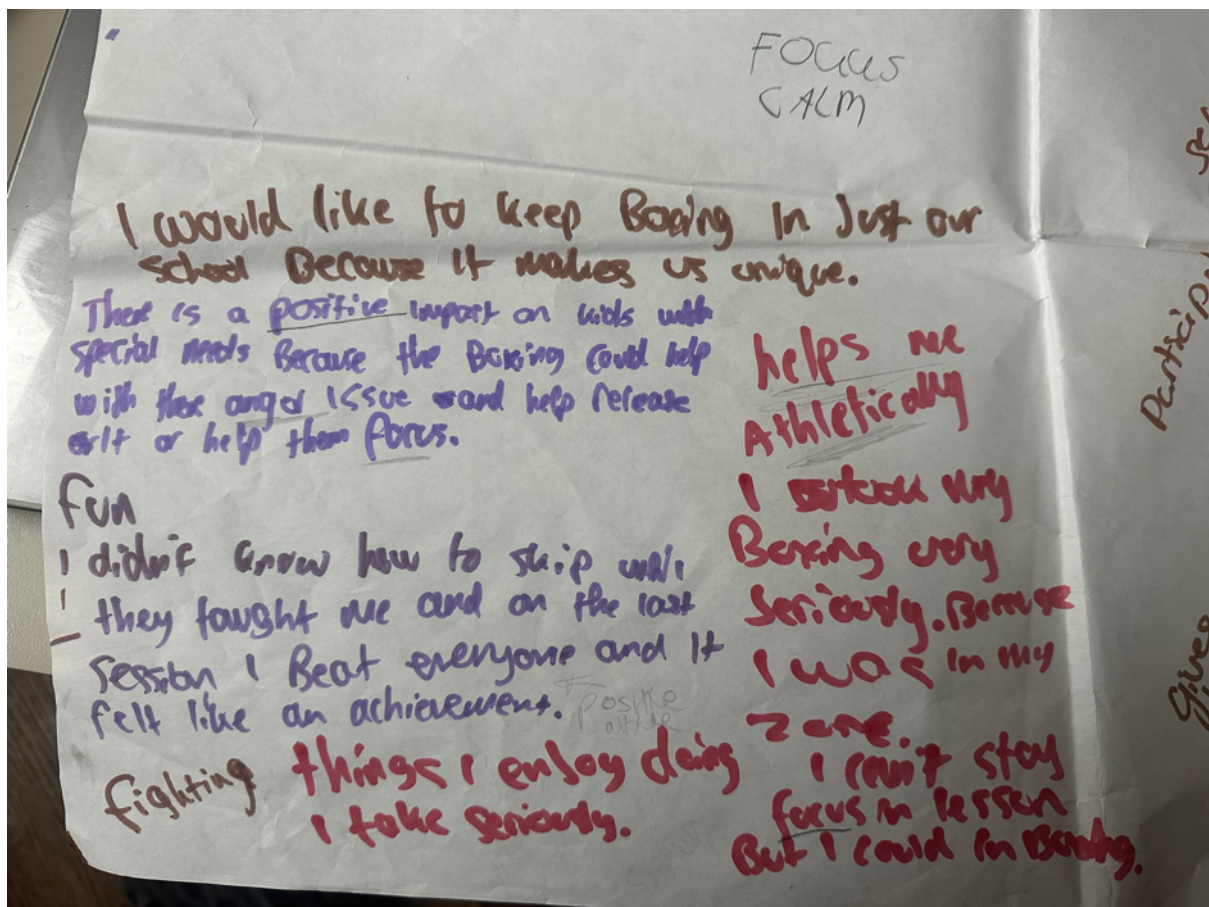 FOCUS
CALM
I would like to keep Boxing In Just our
school Because It makes us unique.
There is a positive impact on kids with
special needs Because the Boxing could help
with there anger Issue and help release
it or help them focus.
fun
I didn't know how to skip until
they taught me and on the last
session I Beat everyone and It
felt like an achievement.
Positive
fighting
things I enjoy doing
I take seriously.
helps me
Athletically
I took
Boxing very
Seriously. Because
I was in my
zone.
I can't stay
focus in lesson
But I could in Boxing.
Gives